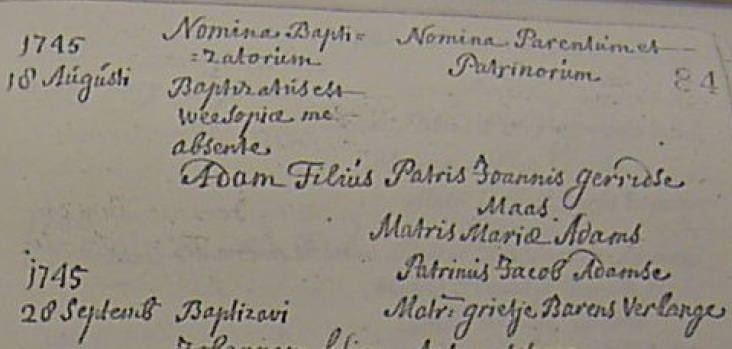 1745 Nomina Bapti= Nomina Parentum et
=zatorum Patrinorum 84
18 Augusti Baptizatus est
weesopiæ me
absente
Adam Filius Patris Joannis gerridse
Maas
Matris Mariæ Adams
1745 Patrinus Jacob Adamse
28 Septemb Baptizavi Matr: grietje Barens Verlange